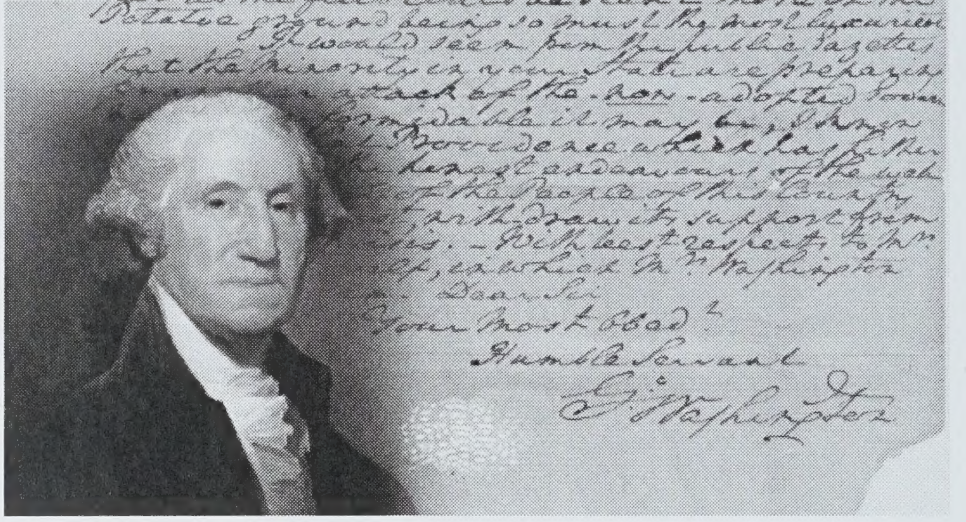 Potatoe ground being so must the most luxurien
It would seem from the public Gazettes
that the Minority in your State are preparing
attack of the now-adopted Govern
formidable it may be, I
Providence which has hither
honest endeavours of the well
of the People of this Country
withdraw its support from
crisis. - With best respects to Mrs
in which Mrs Washington
Dear Sir
Your Most Obedt
Humble Servant
Go Washington